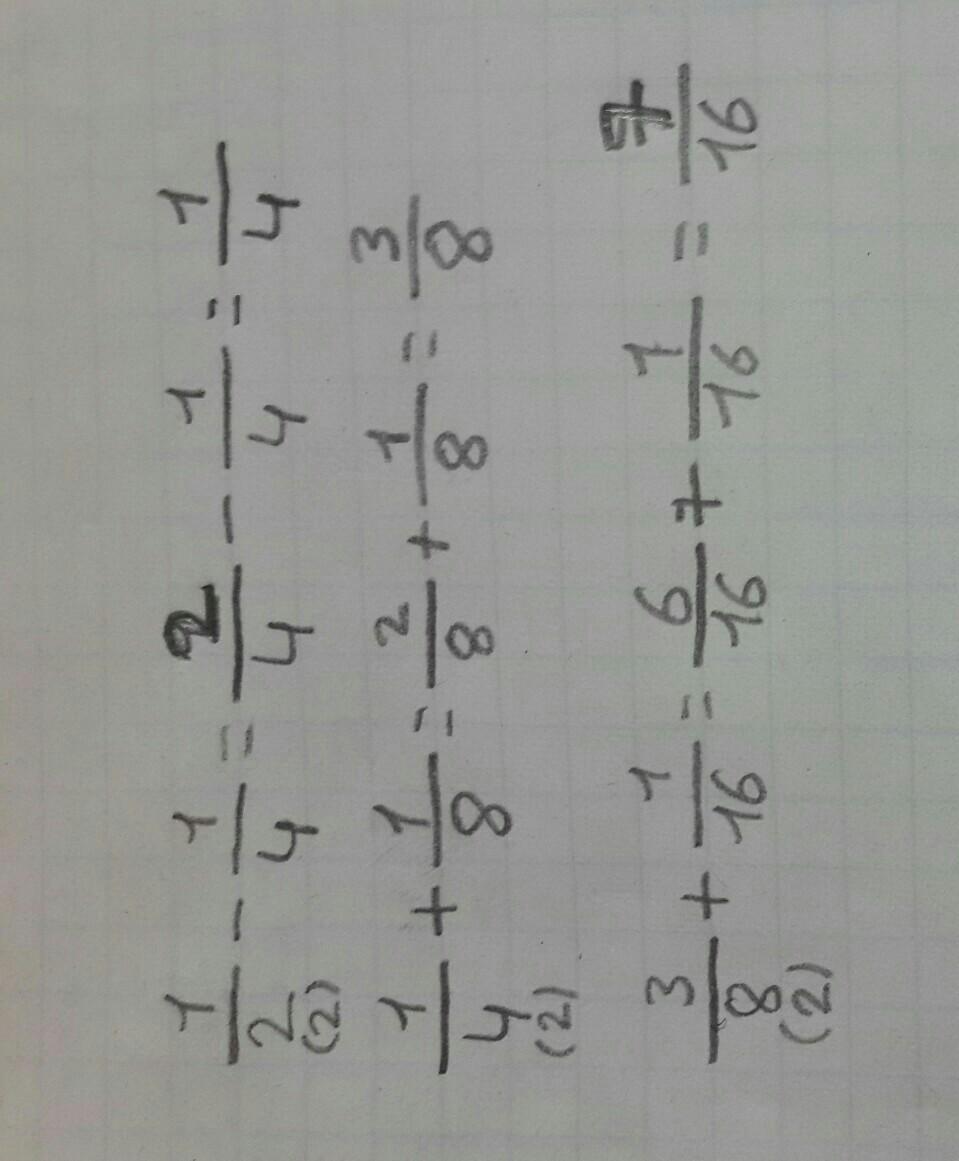 1/2 - 1/4 = 2/4 - 1/4 = 1/4
(2)
1/4 + 1/8 = 2/8 + 1/8 = 3/8
(2)
3/8 + 1/16 = 6/16 + 1/16 = 7/16
(2)